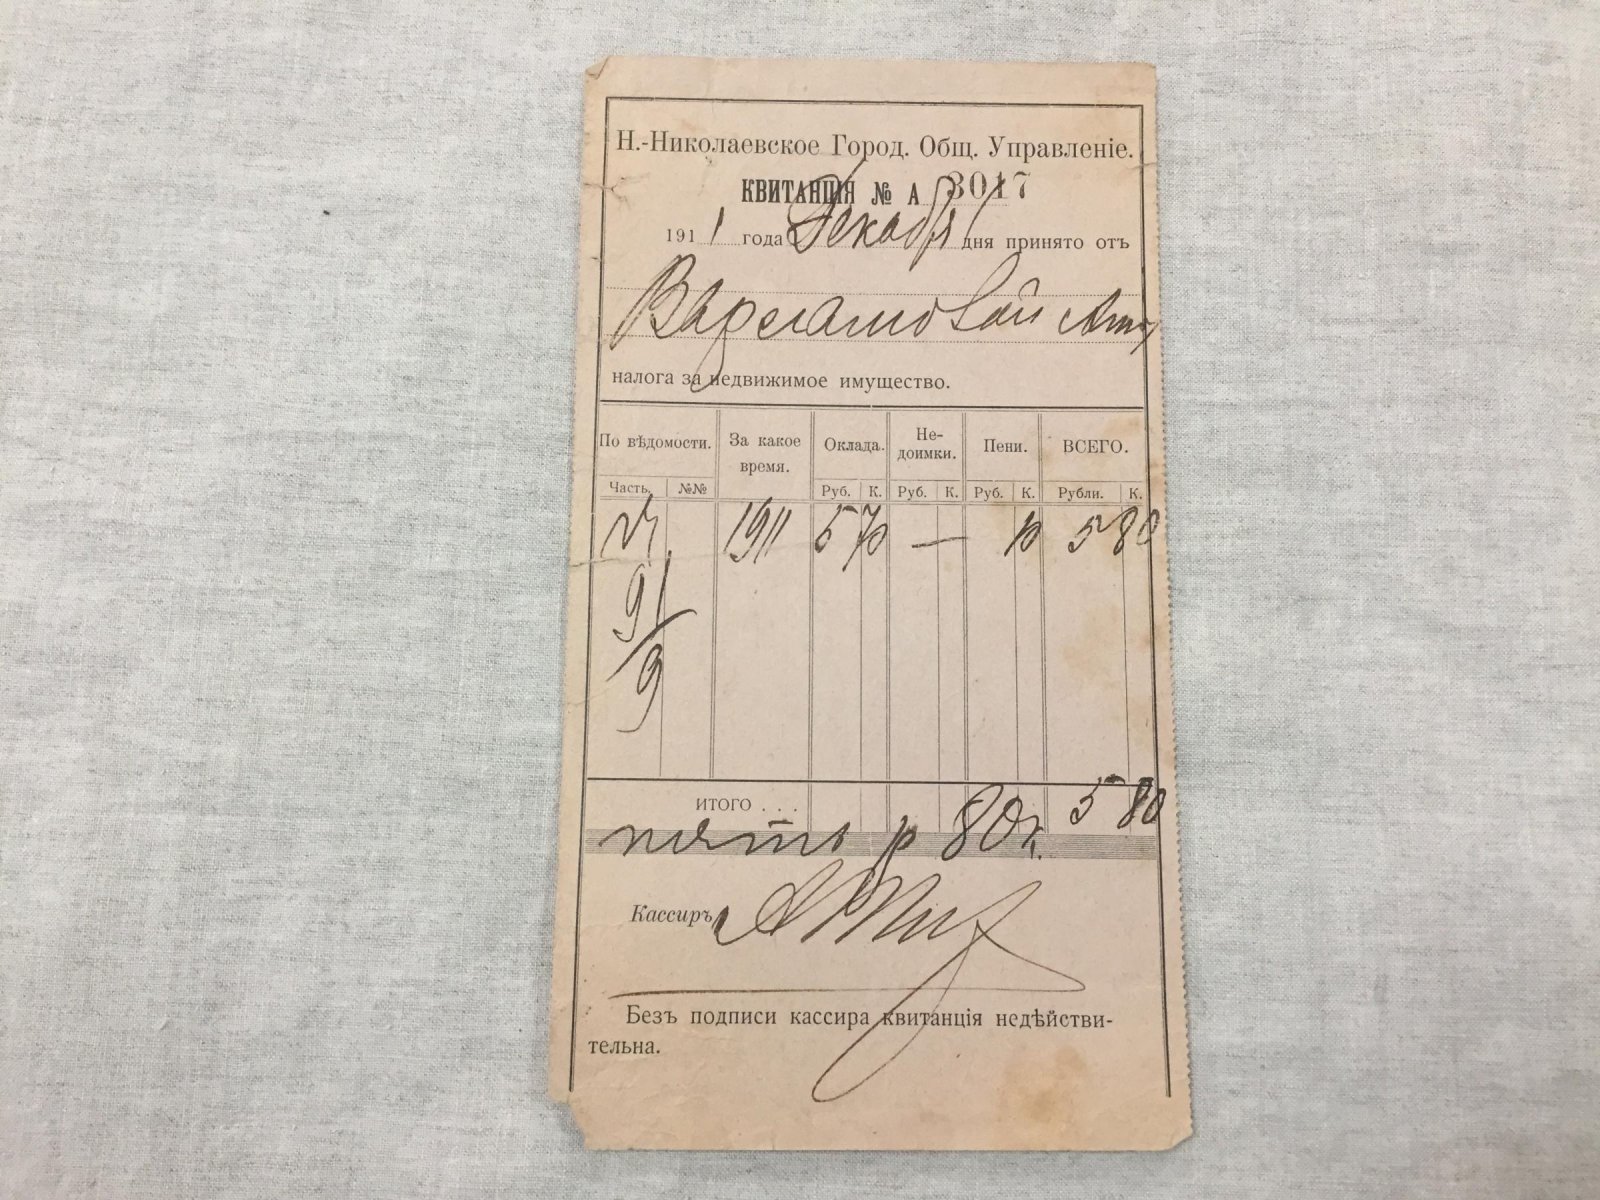 Н.-Николаевское Город. Общ. Управленіе.
КВИТАНЦІЯ № А 3017
1911 года Декабря дня принято отъ
Варламовой
налога за недвижимое имущество.
По вѣдомости. За какое время. Оклада. Не-доимки. Пени. ВСЕГО.
Часть. №№ Руб. К. Руб. К. Руб. К. Рубли. К.
1911 5 — 5 80
91/9
ИТОГО . . . 5 80
пять р 80 к.
Кассиръ
Безъ подписи кассира квитанція недѣйстви-
тельна.